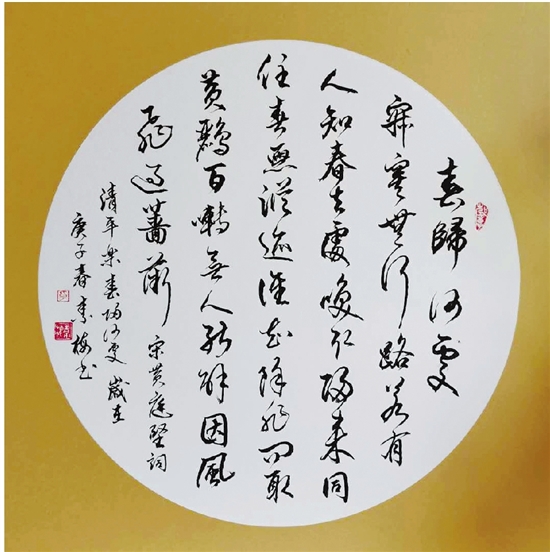 春歸何處
寂寞無行路若有
人知春去處喚取歸來同
住春無蹤迹誰知除非問取
黃鸝百囀無人能解因風
飛過薔薇
宋黃庭堅詞
清平樂春歸何處 歲在
庚子春李梅书